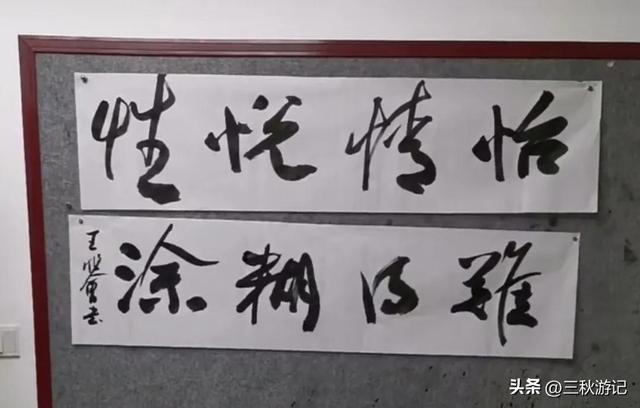 怡情悦性
難得糊涂
王
书
头条 @三秋游记